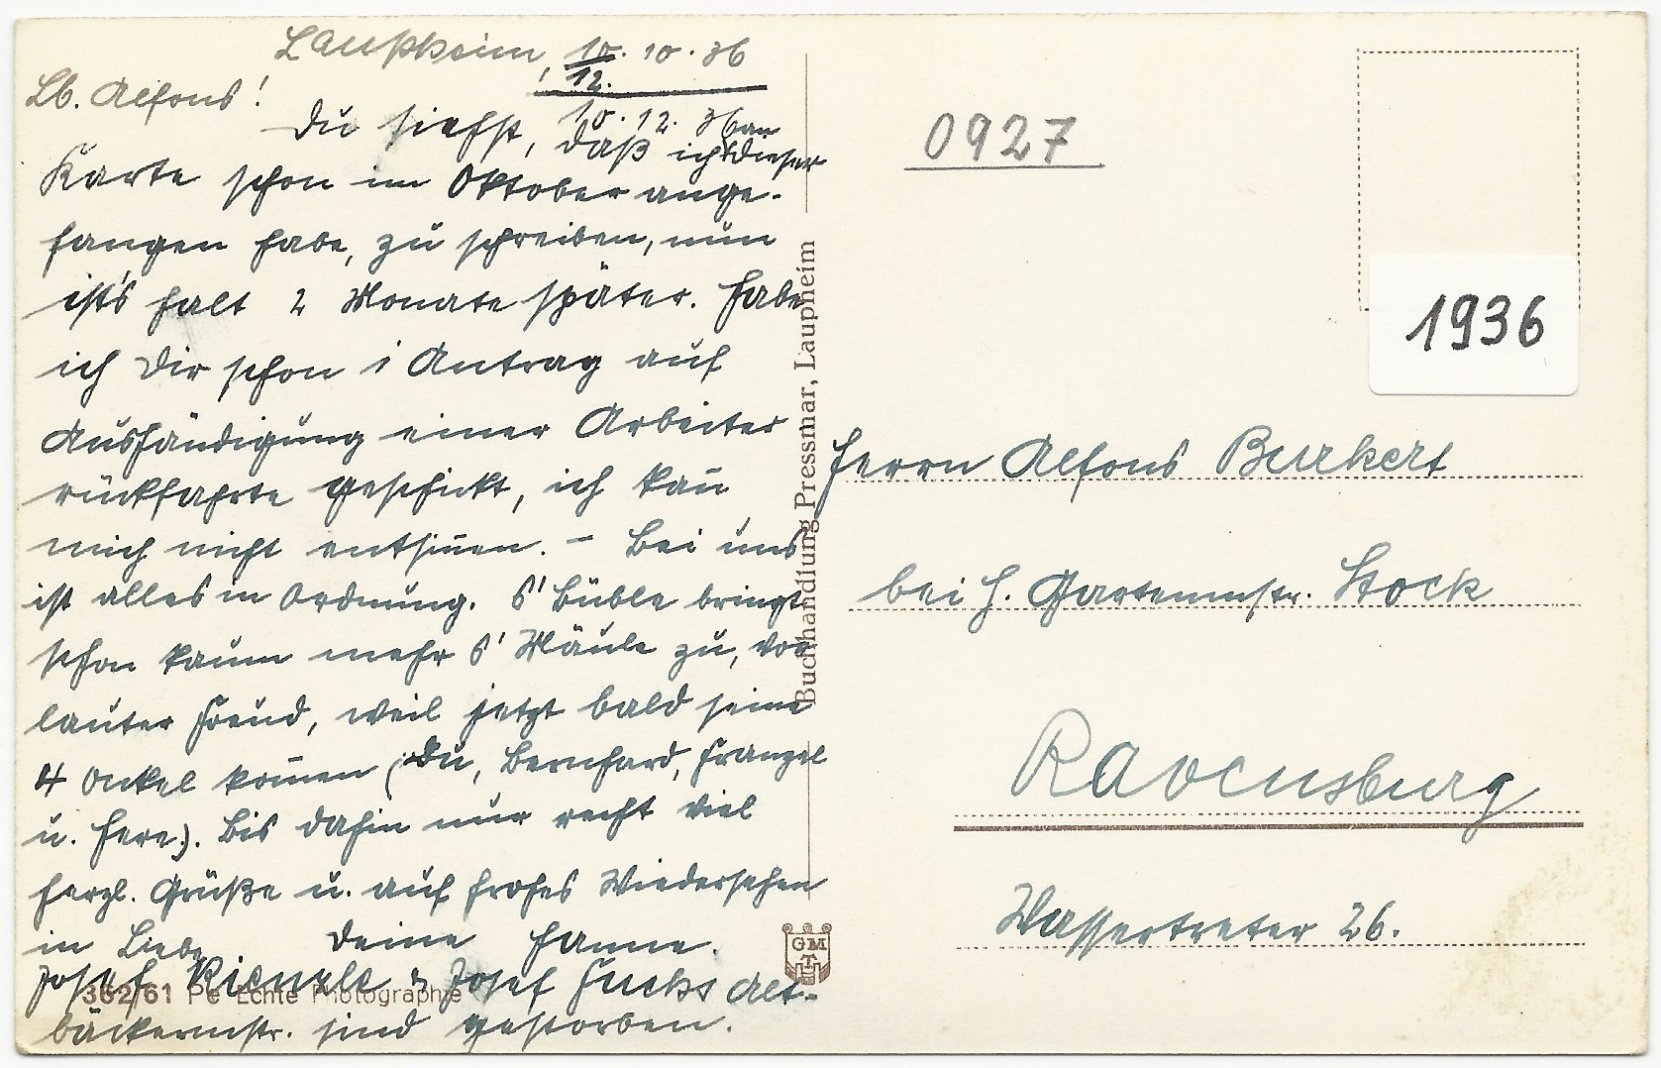 Laupheim, 10. 10. 36
12.
10. 12. 36
Lb. Alfons!
Du siehst, daß ich an dieser
Karte schon im Oktober ange-
fangen habe, zu schreiben, nun
ist's halt 2 Monate später. Habe
ich Dir schon 1 Antrag auf
Aushändigung einer Arbeiter
rückfahrte geschickt, ich kan̄
mich nicht entsin̄en. – Bei uns
ist alles in Ordnung. S' Büble bringt
schon kaum mehr s' Mäule zu, vor
lauter Freud, weil jetzt bald seine
4 Onkel kom̄en (Du, Bernhard, Franzel
u. Here.). Bis dahin nur recht viel
herzl. Grüße u. auf frohes Wiedersehen
in Liebe Deine Hanne.
Josef Kienzle & Josef Fuchs Alt-
bäckermstr. sind gestorben.
362/61 Pe Echte Photographie
Buchhandlung Pressmar, Laupheim
GM
T
0927
1936
Herrn Alfons Burkert
bei H. Gartenmstr. Stock
Ravensburg
Wassertreter 26.